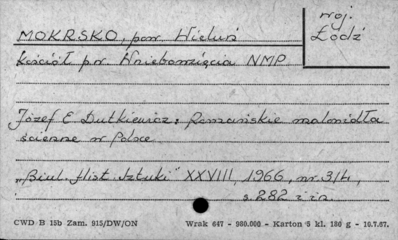 MOKRSKO, pow. Wieluń
woj. Łódź
Kościół pw. Wniebowzięcia NMP
Józef E Dutkiewicz: Romańskie malowidła
ścienne w Polsce
„Biul. Hist. Sztuki" XXVIII, 1966, nr 3/4,
s. 282 i in.
CWD B 15b Zam. 915/DW/ON Wrak 647 - 980.000 - Karton 5 kl. 180 g - 10.7.67.